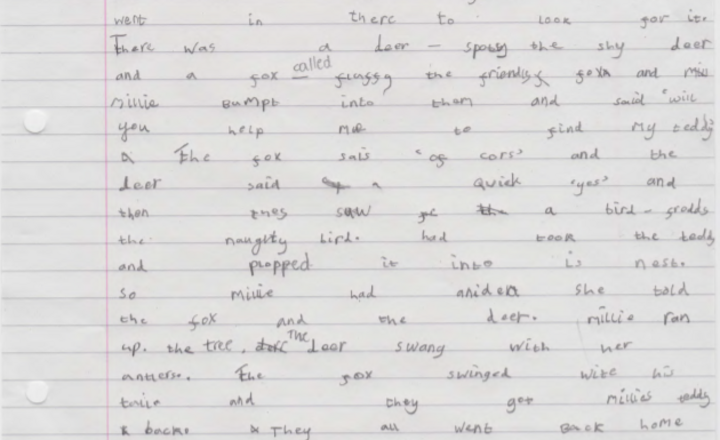 went in there to look for it.
There was a deer - spotty the shy deer
and a fox called fluffy the friendly fox and
Millie Bumpt into them and said "will
you help me to find my teddy"
The fox sais "of cors" and the
deer said a quick "yes" and
then they saw a bird -
the naughty bird. had took the teddy
and propped it into is nest.
so Millie had anidea she told
the fox and the deer. Millie ran
up. the tree, The deer swang with her
antlers. The fox swinged with his
taile and they got Millies teddy
back. They all went Back home